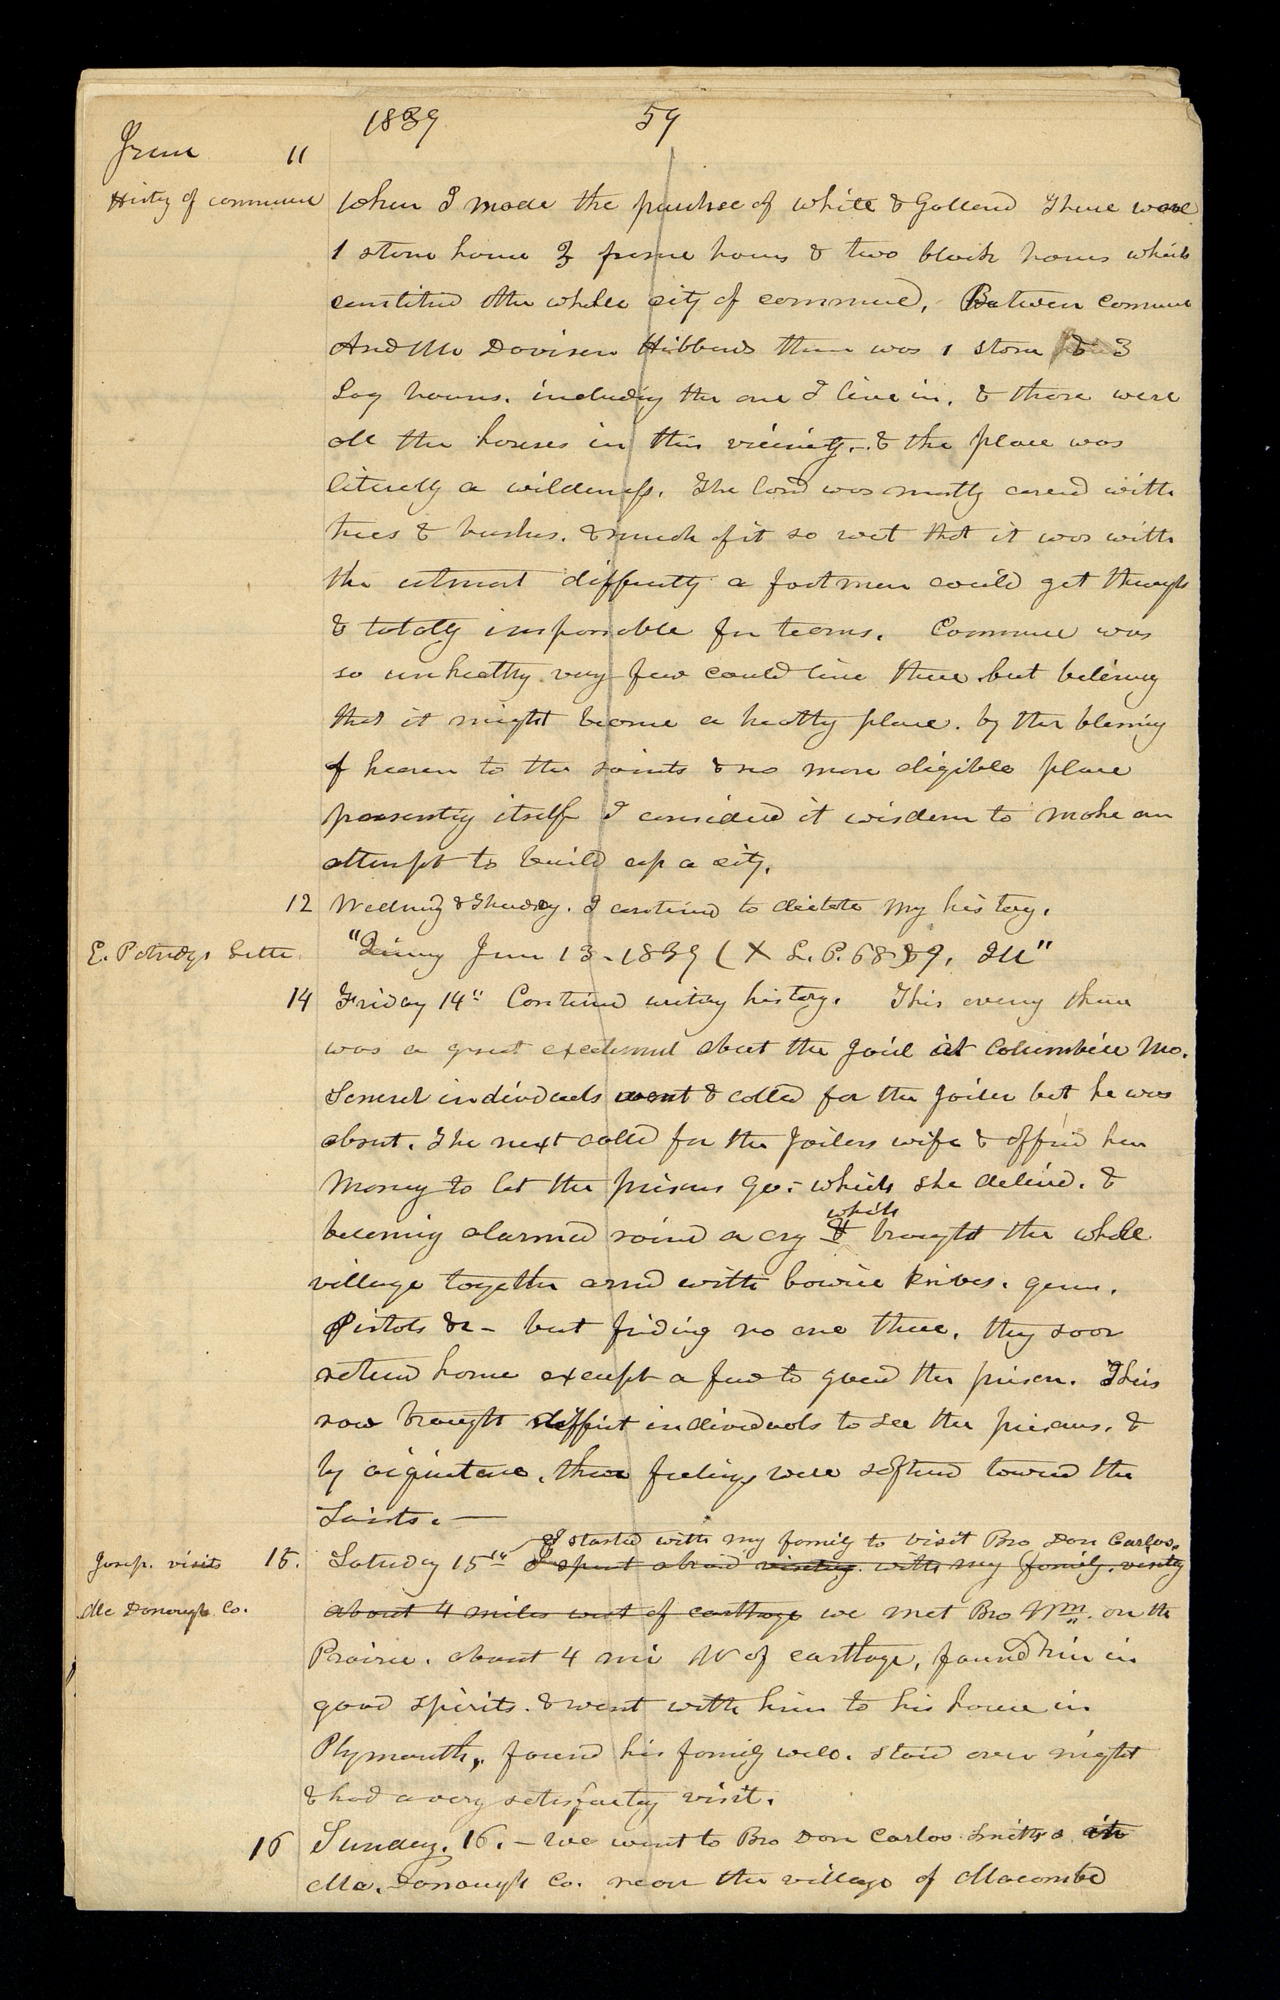 1839 59
June 11
Histy of commerce When I made the purchse of white & Galland There were
1 stone house 3 frame hous & two block houses which
constitud the whole city of commerce, Between Commerce
And Mr Davison Hibbards there was 1 stone & 3
Log houses. includig the one I live in. & those were
all the houses in this vicinity.- & the place was
literally a wilderness. The land was mostly coverd with
trees & bushes. & much of it so wet that it was with
the utmost difficulty a footman could get through
& totally impossible for teams. Commerce was
so unhealthy very few could live there but beliving
that it might become a healthy place. by the blessing
of heaven to the saints & no more eligible place
presentig itself I considerd it wisdom to make an
attempt to build up a city.
12 Wednesdy & Thursday. I continud to dictate my history.
E. Patridgs Letter. "Quincy June 13-1839 ( X L. P. 68 & 9. Ill"
14 Friday 14" Continud writig history. This eveng there
was a great excitement about the Jail at Columbia Mo.
Several individuals went & called for the Jailer but he was
absent. The next called for the Jailers wife & offerd her
Money to let the prisners go.- which she declined. &
which
becoming alarmed raised a cry & brought the whole
village together armed with bowie knives. guns.
Pistols &c - but finding no one there. they soon
returnd home except a few to guard the prison. This
row brought diffent individuals to see the prisoners. &
by aiquintance. their feelings were softend toward the
Saints. —
I started with my family to visit Bro Don Carlos.
Josep. visits 15. Saturday 15th I spent abroad visiting with my family. visitig
Mc Donough Co. about 4 miles west of carthage we met Bro Wm. on the
Prairie. about 4 mi W of carthage, found him in
good spirits. & went with him to his house in
Plymouth, found his family well. staid over night
& had a very satisfactry visit.
16 Sunday. 16. - We went to Bro Don Carlos Smith's in
Mc. Donough Co. near the village of Macombe